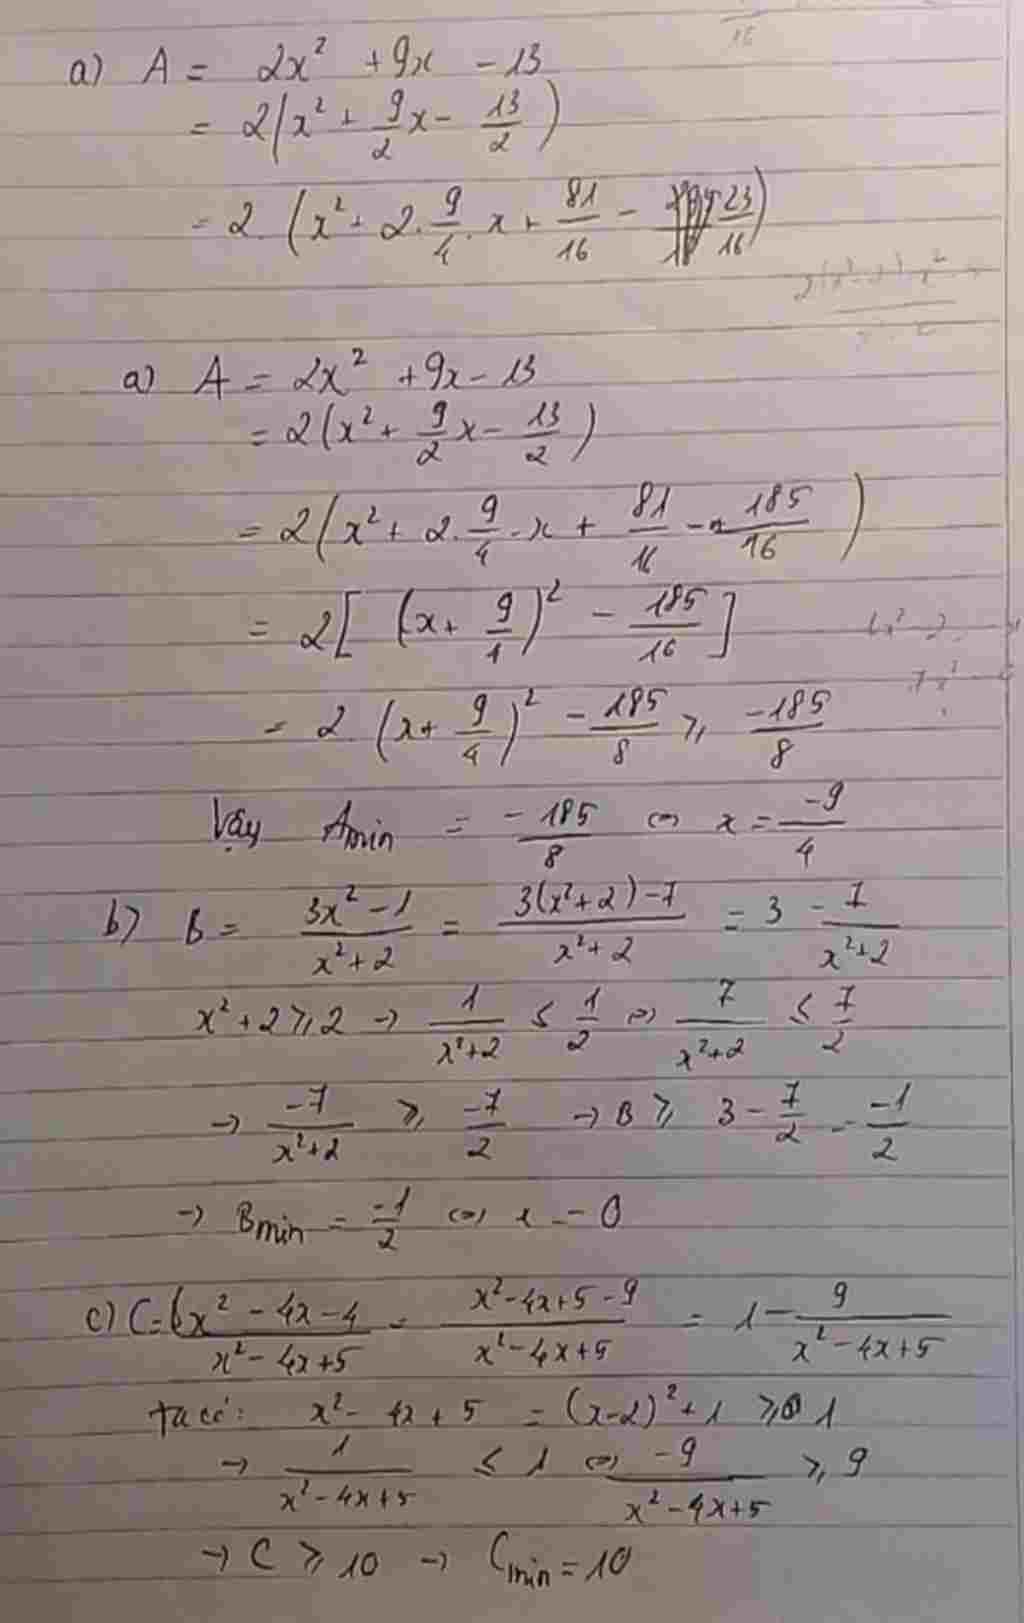 a) A = 2x² + 9x - 13
= 2(x² + 9/2 x - 13/2)
= 2. (x² + 2. 9/4 . x + 81/16 - 23/16)
a) A = 2x² + 9x - 13
= 2(x² + 9/2 x - 13/2)
= 2(x² + 2. 9/4 . x + 81/16 - 185/16)
= 2[(x + 9/1)² - 185/16]
= 2. (x + 9/4)² - 185/8 ≥ -185/8
Vậy Amin = -185/8 ⇔ x = -9/4
b) B = (3x² - 1)/(x² + 2) = (3(x² + 2) - 7)/(x² + 2) = 3 - 7/(x² + 2)
x² + 2 ≥ 2 → 1/(x² + 2) ≤ 1/2 ⇔ 7/(x² + 2) ≤ 7/2
→ -7/(x² + 2) ≥ -7/2 → B ≥ 3 - 7/2 = -1/2
→ Bmin = -1/2 ⇔ x = 0
c) C = (x² - 4x - 4)/(x² - 4x + 5) = (x² - 4x + 5 - 9)/(x² - 4x + 5) = 1 - 9/(x² - 4x + 5)
ta có: x² - 4x + 5 = (x - 2)² + 1 ≥ 1
→ 1/(x² - 4x + 5) ≤ 1 ⇔ -9/(x² - 4x + 5) ≥ 9
→ C ≥ 10 → Cmin = 10